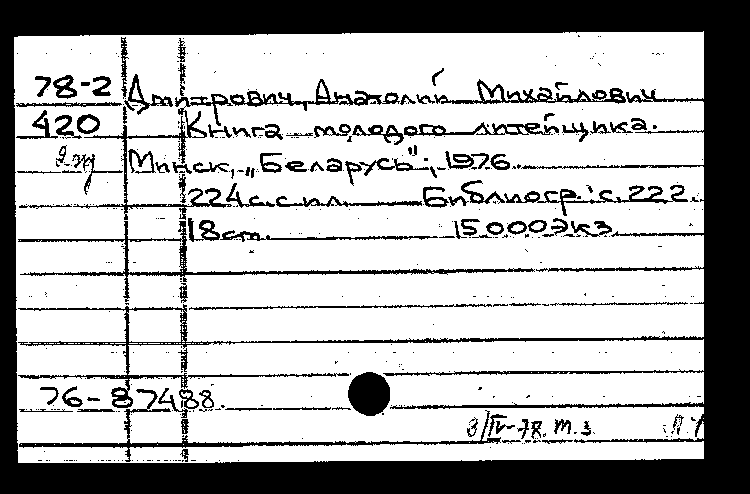 78-2 Дмитрович, Анатолий Михайлович
420 Книга молодого литейщика.
Минск, „Беларусь", 1976.
224 с. с ил. Библиогр.: с. 222.
18 cm. 15000 экз.
76-87488.
3/IV-78. т. 3.